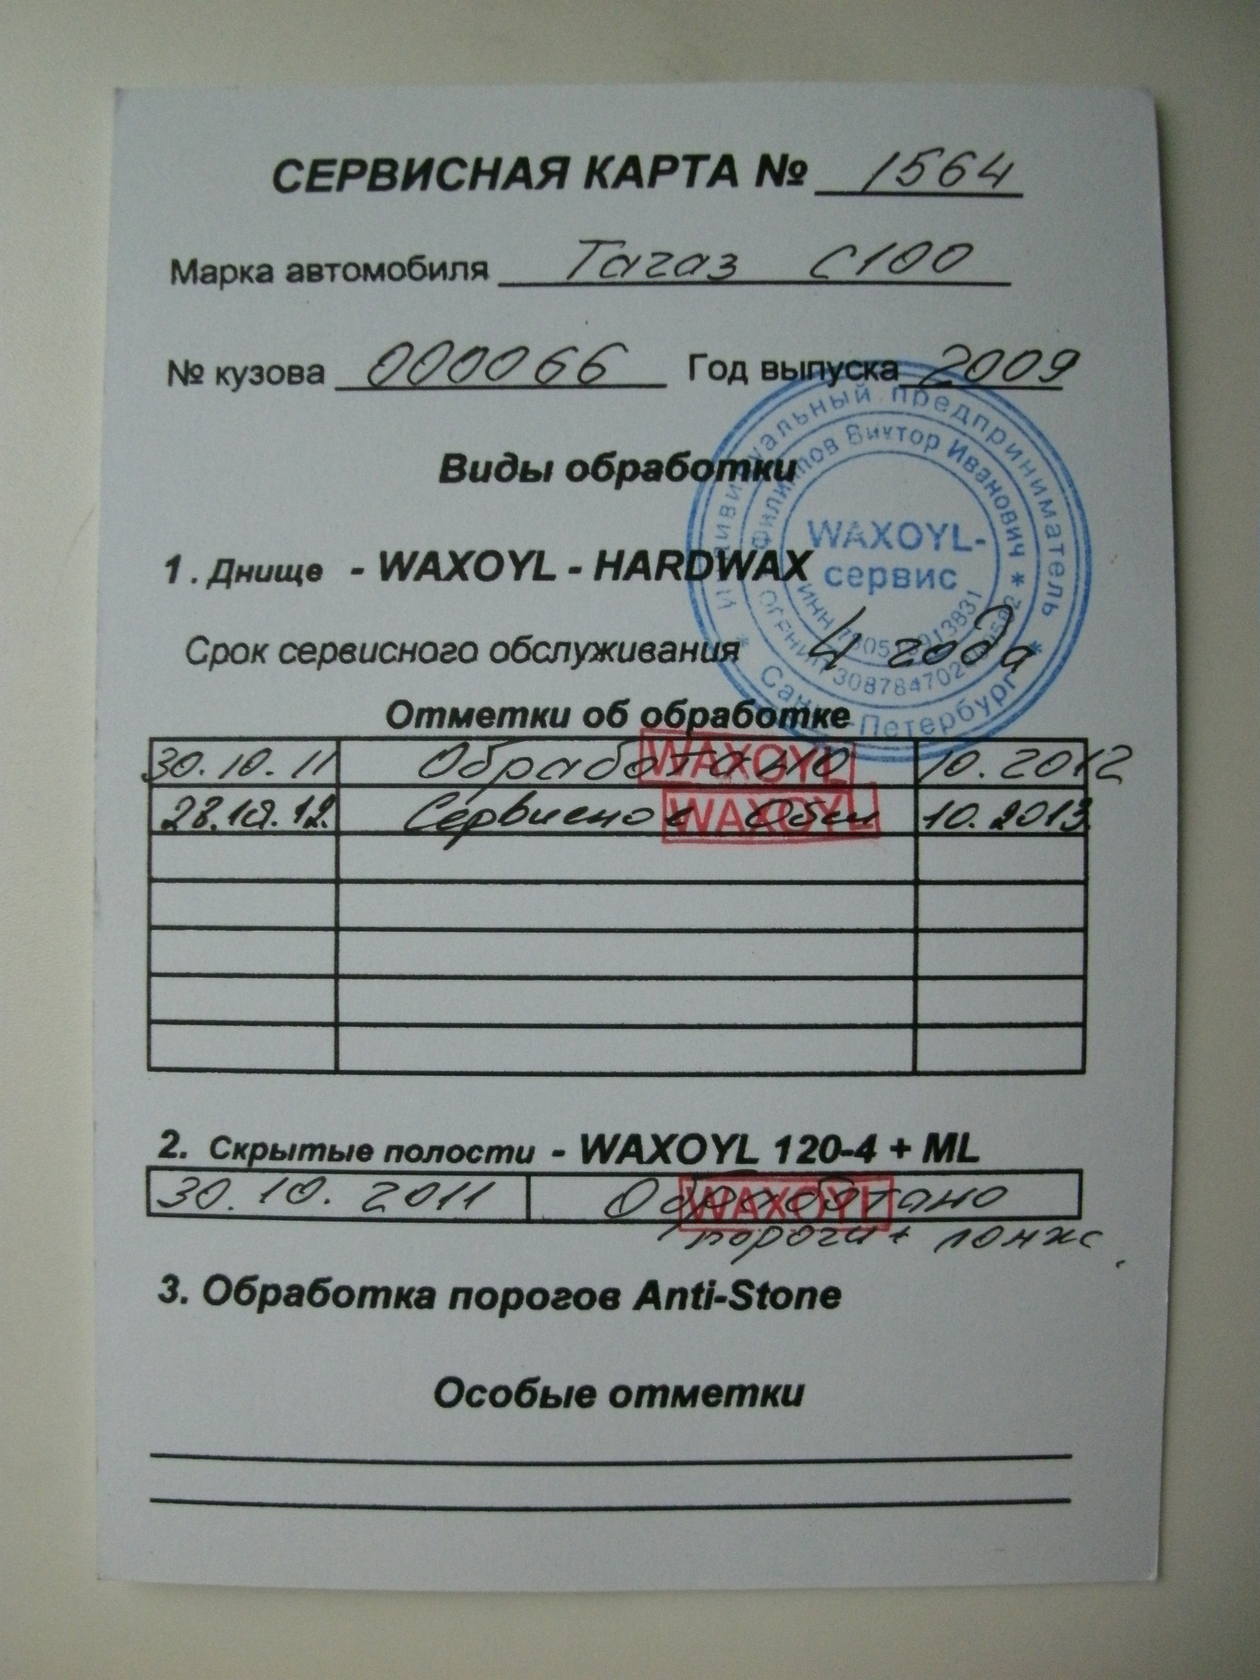 СЕРВИСНАЯ КАРТА № 1564
Марка автомобиля Тагаз С100
№ кузова 000066 Год выпуска 2009
Индивидуальный предприниматель
Филиппов Виктор Иванович
WAXOYL-
сервис
Санкт-Петербург
Виды обработки
1. Днище - WAXOYL - HARDWAX
Срок сервисного обслуживания 4 года
Отметки об обработке
30.10.11 Обработано WAXOYL 10.2012
28.10.12. WAXOYL 10.2013.
2. Скрытые полости - WAXOYL 120-4 + ML
30.10.2011 Обработано WAXOYL
пороги +
3. Обработка порогов Anti-Stone
Особые отметки